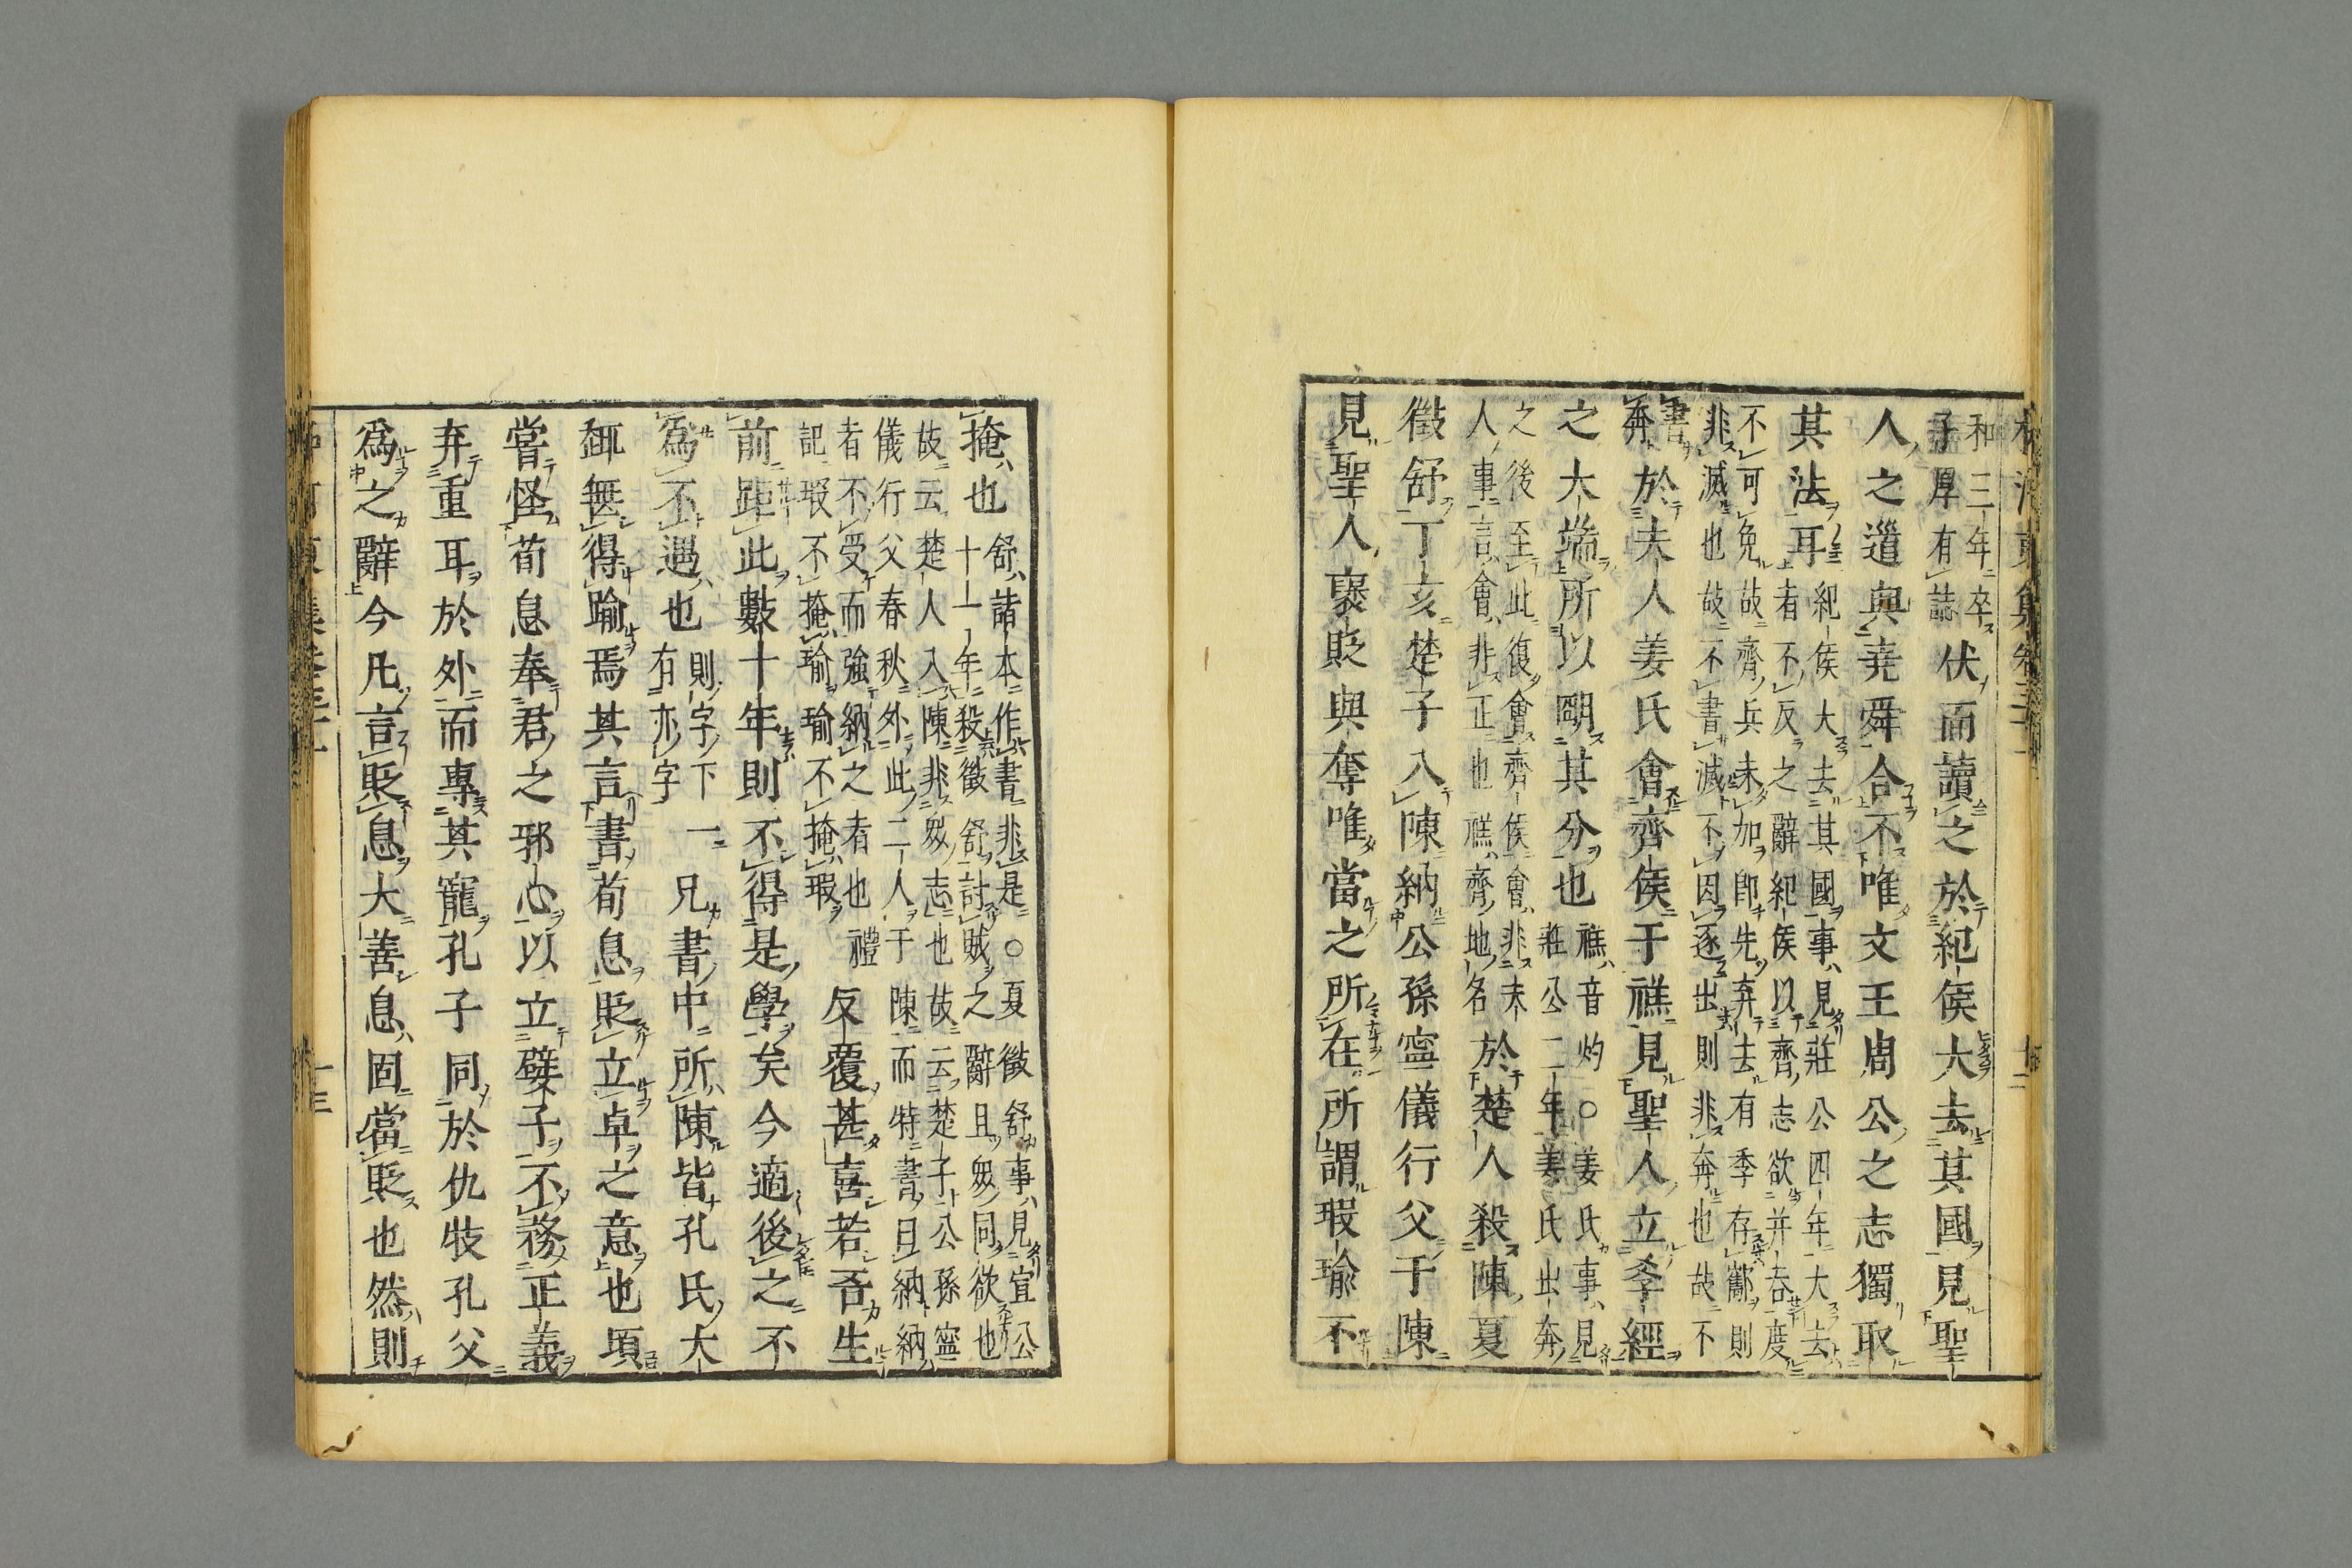 和三年卒
子厚有誌伏而讀之於紀侯大去其國見聖
人之道與堯舜合不唯文王周公之志獨取
其法耳
紀侯大去其國事見莊公四年大去
者不反之辭紀侯以齊志欲并吞度
不可免故齊兵未加即先弃去有季存酅則
非滅也故不書滅不因逐出則非奔也故不
書奔
於夫人姜氏會齊侯于禚見聖人立孝經
之大端所以明其分也
禚音灼○姜氏事見
莊公二年姜氏出奔
之後至此復會齊侯會非夫
人事言會非正也禚齊地名
於楚人殺陳夏
徵舒丁亥楚子入陳納公孫寧儀行父于陳
見聖人褒貶與奪唯當之所在所謂瑕瑜不
掩也
舒諸本作書非是○夏徵舒事見宣公
十一年殺徵舒討賊之辭且衆同欲也
故云楚人入陳非衆志也故云楚子公孫寧
儀行父春秋外此二人于陳而特書曰納納
者不受而強納之者也禮
記瑕不掩瑜瑜不掩瑕
反覆甚喜若吾生
前距此數十年則不得是學矣今適後之不
爲不遇也
則字下
有亦字
一兄書中所陳皆孔氏大
䡄無得踰焉其言書荀息貶立卓之意也頃
嘗怪荀息奉君之邪心以立嬖子不務正義
弃重耳於外而專其寵孔子同於仇牧孔父
爲之辭今凡言貶息大善息固當貶也然則